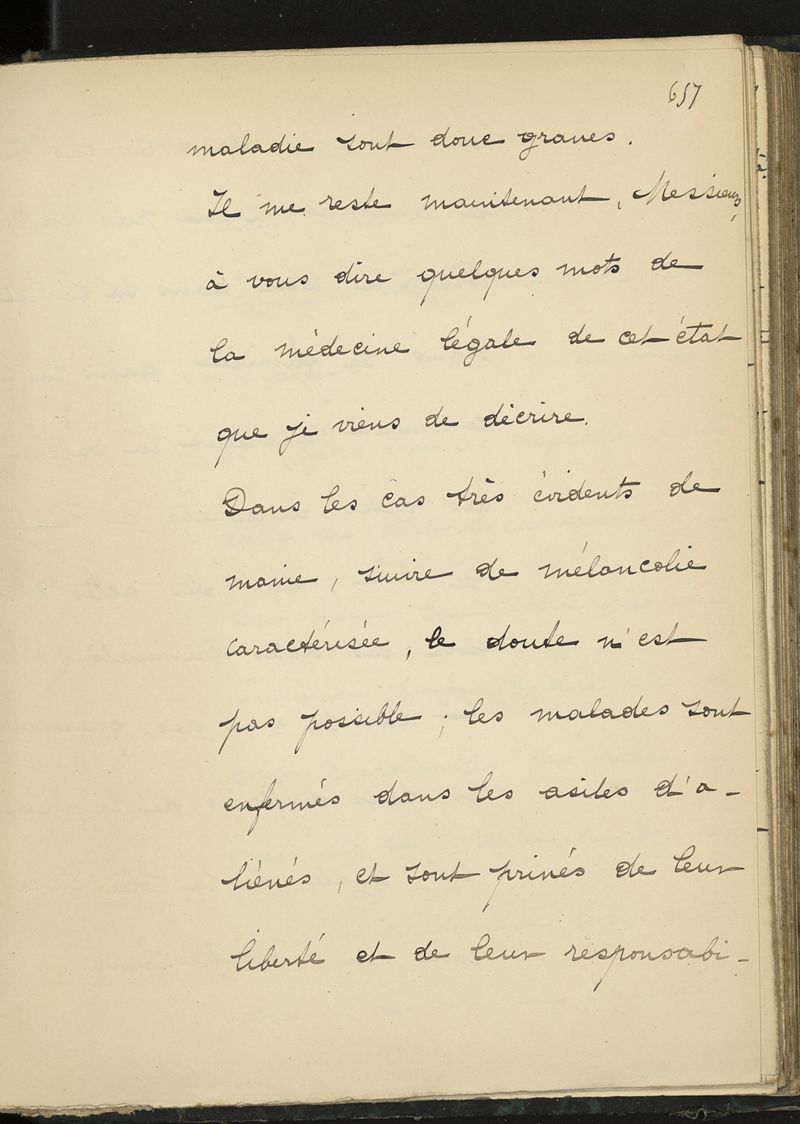 657
maladie sont donc graves.
Il me reste maintenant, Messieurs,
à vous dire quelques mots de
la médecine légale de cet état
que je viens de décrire.
Dans les cas très évidents de
manie, suivie de mélancolie
caractérisée, le doute n'est
pas possible ; les malades sont
enfermés dans les asiles d'a-
liénés, et sont privés de leur
liberté et de leur responsabi-